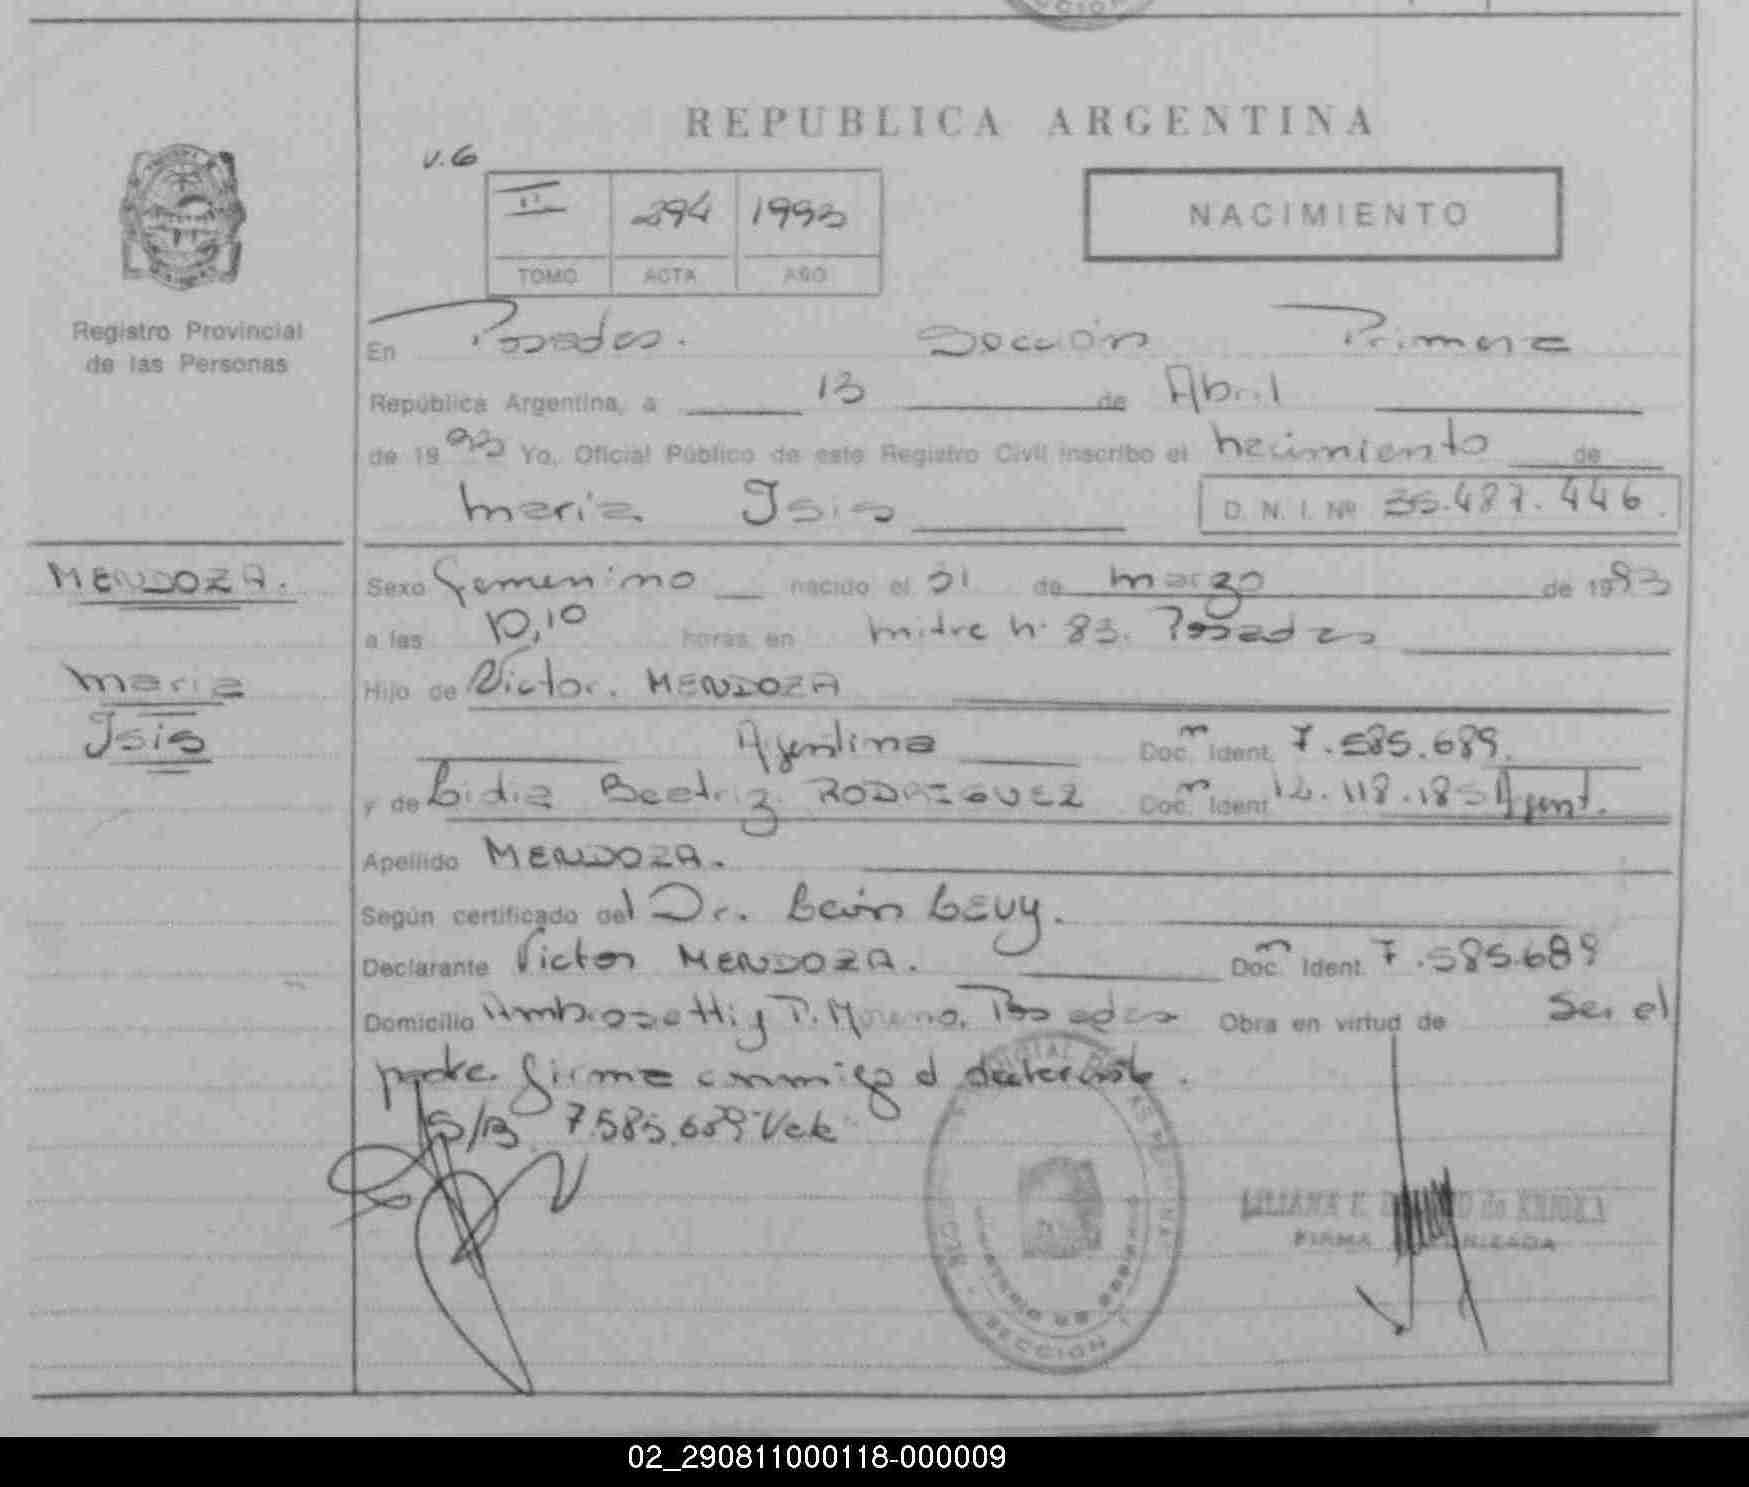 REPUBLICA ARGENTINA
V.6
II 294 1993
TOMO ACTA AÑO
NACIMIENTO
Registro Provincial
de las Personas
En Posadas. Sección Primera
República Argentina, a 13 de Abril
de 1993 Yo, Oficial Público de este Registro Civil inscribo el nacimiento de
Maria Isis D. N. I. Nº 35.487.446.
MENDOZA.
Maria
Isis
Sexo femenino nacido el 31 de marzo de 1993
a las 10,10 horas en Mitre Nº 83. Posadas
Hijo de Victor. MENDOZA
Argentina Doc. Ident. 7.585.689.
y de Lidia Beatriz RODRIGUEZ Doc. Ident. Argent.
Apellido MENDOZA.
Según certificado del Dr. León LEVY.
Declarante Victor MENDOZA. Doc. Ident. 7.585.689
Domicilio Ambrosetti y P. Moreno. Posadas Obra en virtud de Ser el
padre. firma conmigo el declarante.
S/B 7.585.689 Vale
SECCION
LILIANA E. de
FIRMA
02_290811000118-000009